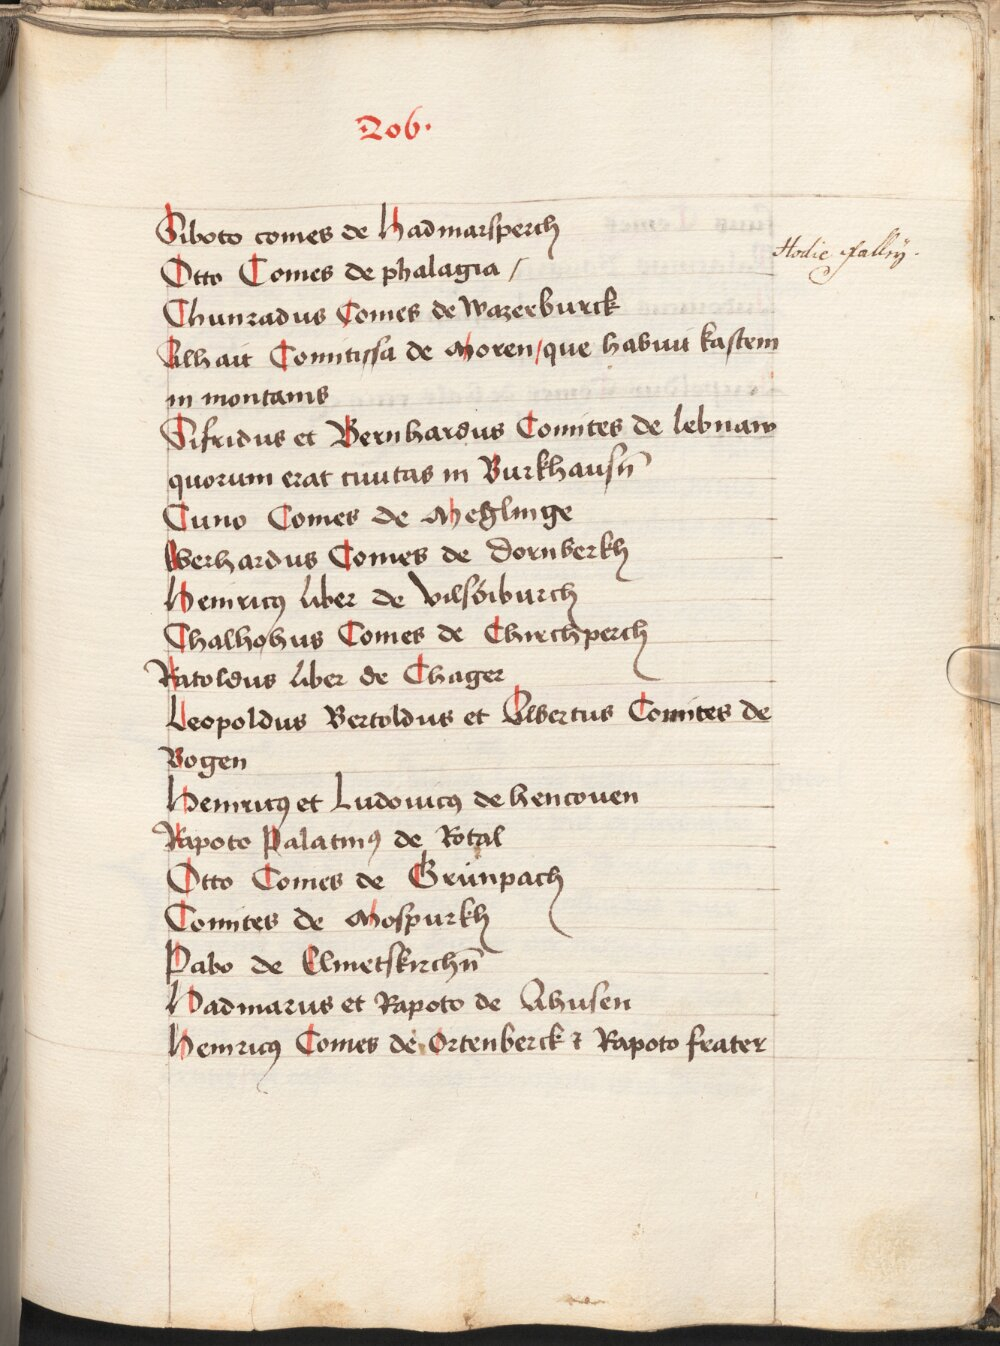 ·206·
Siboto comes de Hadmarsperch
Otto Comes de phalagia /
Hodie falkij.
Chunradus Comes de Wazerburck
Alhait Comitissa de Moren/que habuit kastem
in montanis
Sifridus et Bernhardus Comites de lebnaw
quorum erat ciuitas in Burkhausn̄
Cuno Comes de Meglinge
Werhardus Comes de Dornberkh
Heinricꝯ liber de Vilsbiburch
Chalhohus Comes de Chirchperch
Ratoldus liber de Chager
Leopoldus Bertoldus et Albertus Comites de
Bogen
Heinricꝯ et Ludouicꝯ de hencouen
Rapoto Palatinꝯ de Rotal
Otto Comes de Grünpach
Comites de Mospurkh
Pabo de Elmetskirchn̄
Hadmarus et Rapoto de Ahusen
Heinricꝯ Comes de Ortenberck ⁊ Rapoto frater